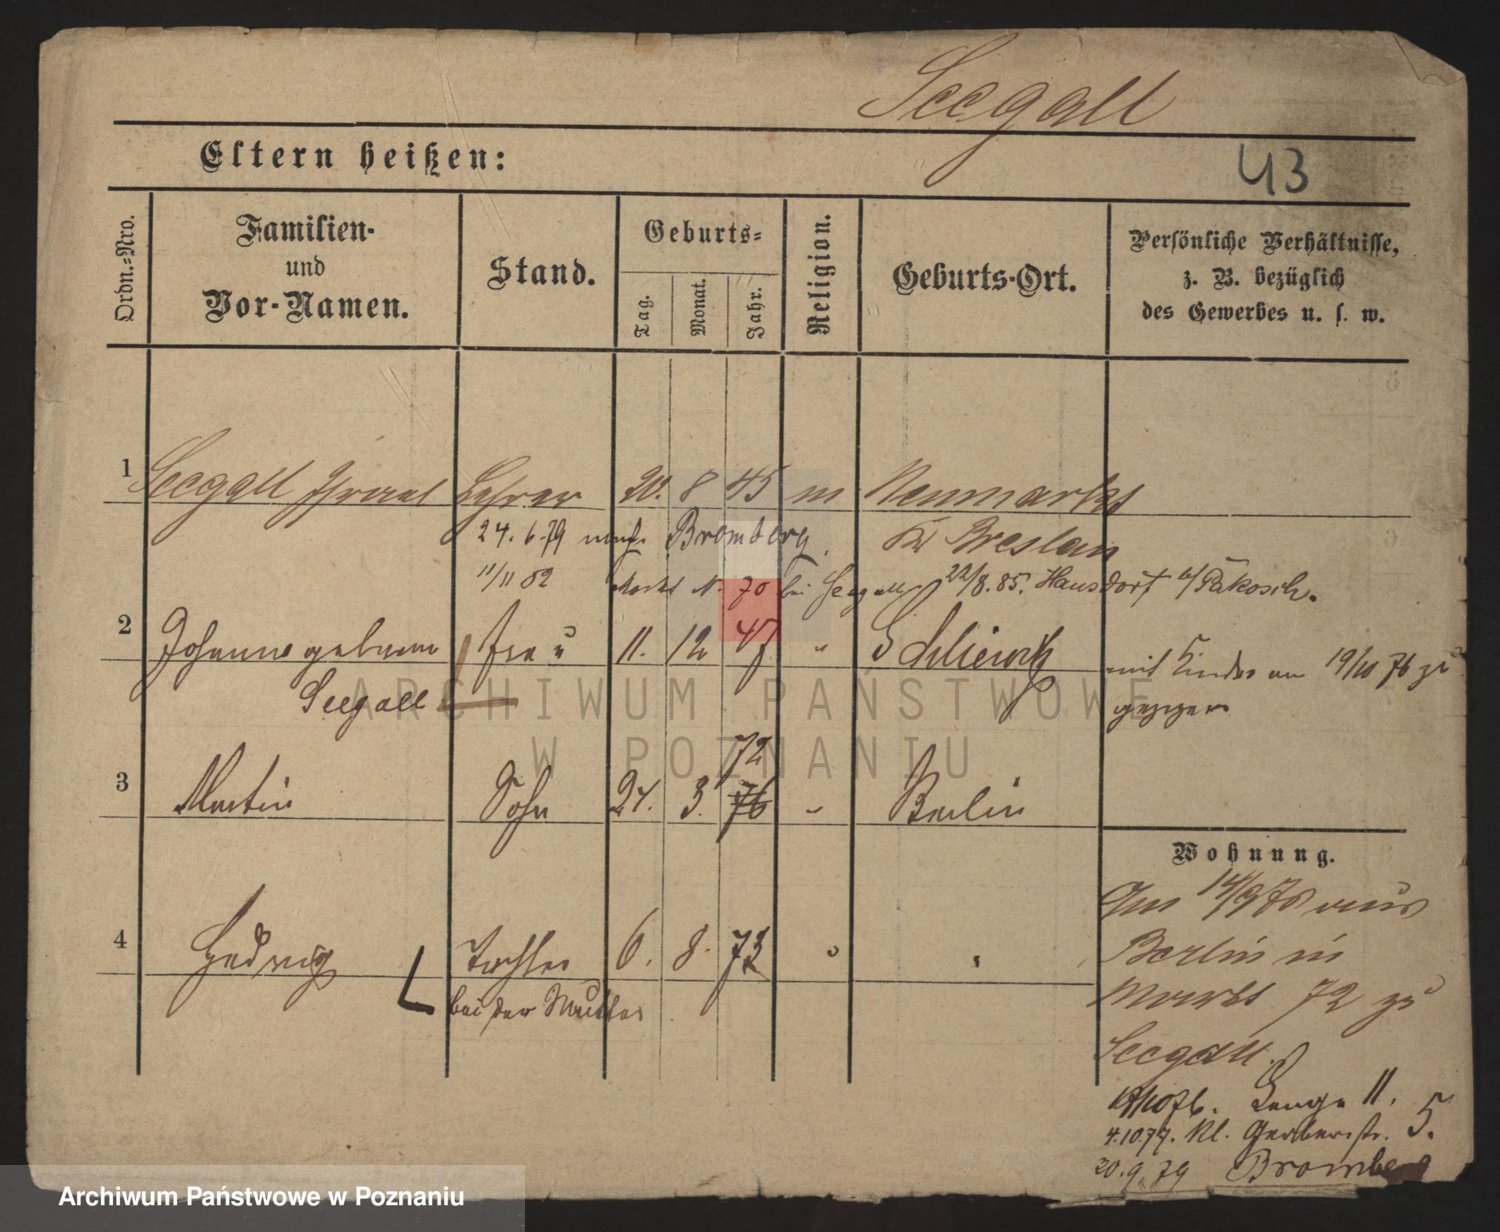 Seegall
Eltern heißen:
43
Ordn.-Nro.
Familien-
und
Vor-Namen.
Stand.
Geburts-
Tag.
Monat.
Jahr.
Religion.
Geburts-Ort.
Persönliche Verhältnisse,
z. B. bezüglich
des Gewerbes u. s. w.
1 Seegall Israel Lehrer 20. 8 45 m Neumarkt
24. 6. 79 nach Bromberg. Breslau
11/11 82 Markt N. 70 bei Seegall 22/8. 85. Hansdorf b/Pakosch.
2 Johanna geborne Frau 11. 12 47 "
Seegall
mit Kinder am 19/10 76 zu
gezogen
3 Martin Sohn 24. 3. 72 76 " Berlin
Wohnung.
4 Hedwig Tochter 6. 8. 73 " "
bei der Mutter
Am 14/9 76 aus
Berlin in
Markt 72 zu
Seegall.
19/10 76. Lange 11.
4.10.77. Kl. Gerberstr. 5.
20. 9. 79 Bromberg
ARCHIWUM PAŃSTWOWE
W POZNANIU
Archiwum Państwowe w Poznaniu